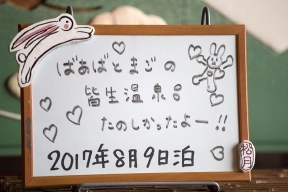 ばあばとまごの
皆生温泉
たのしかったよー!!
2017年8月9日泊
松月